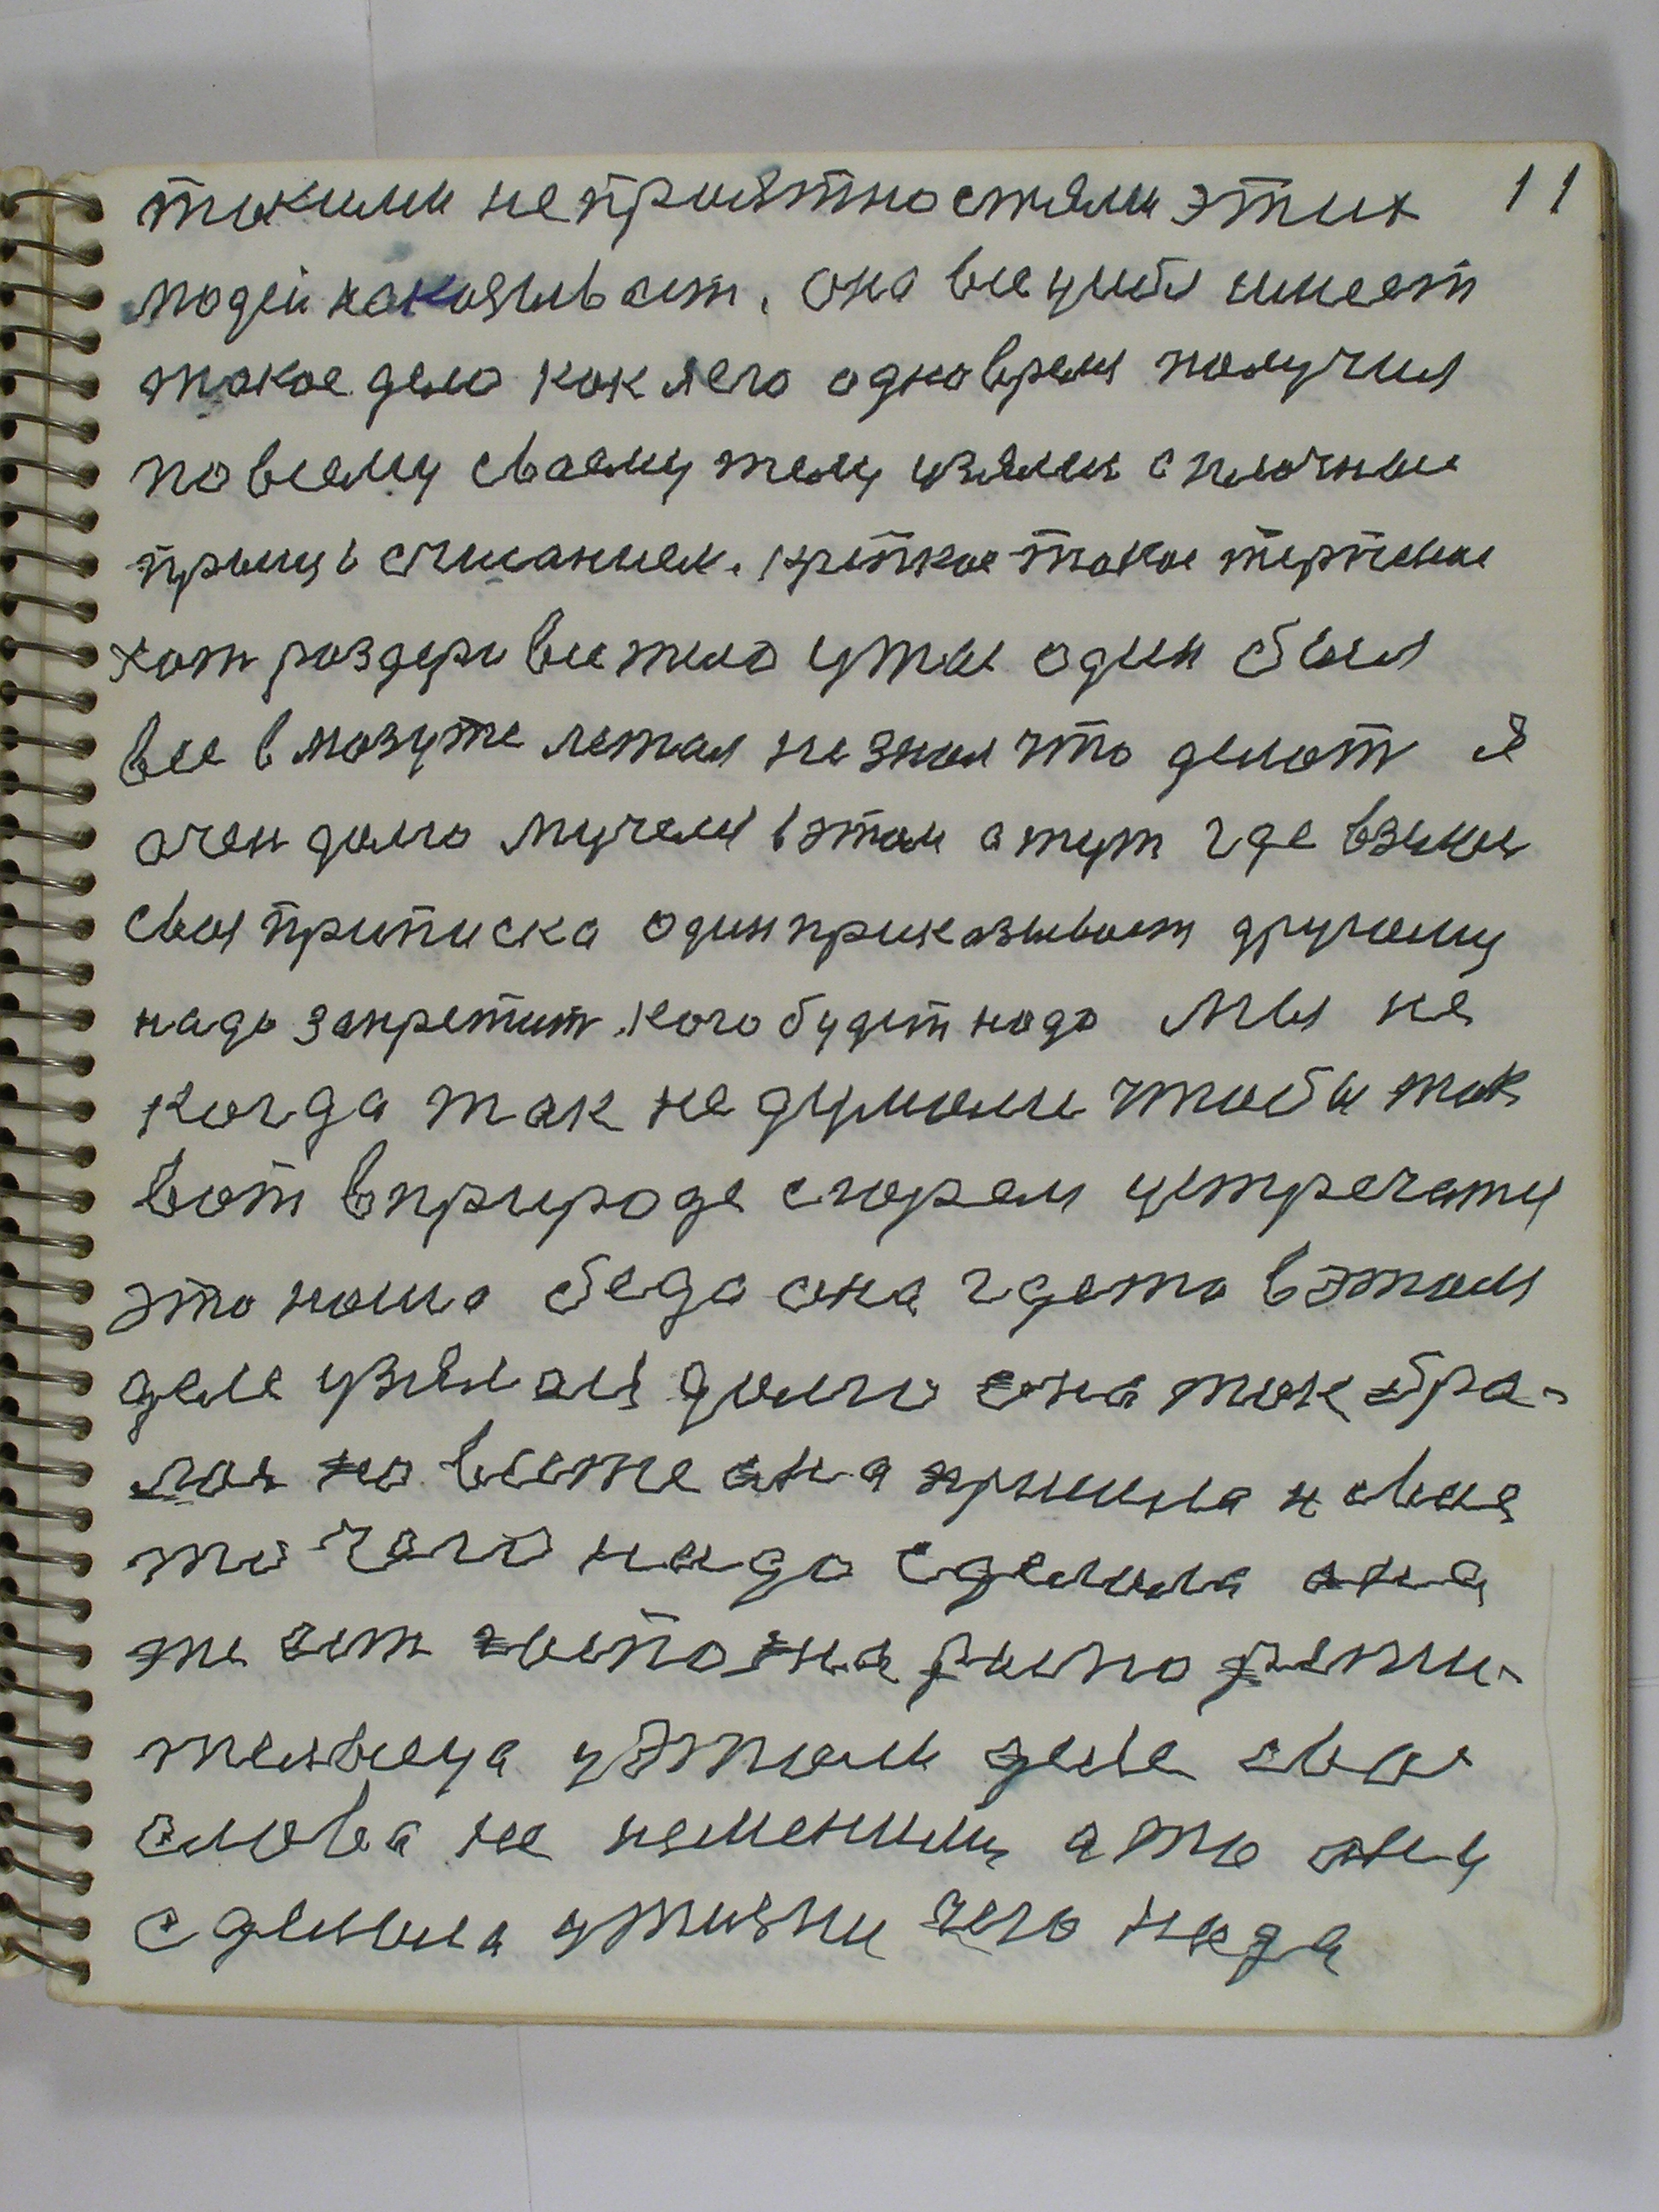 такими неприятностями этих 11
людей наказывает. она все уибя имеет
такое дело как яего одно время получил
повсему своему телу узялися сплочные
прыщ с счисанием. крепкое такое терпение
хот раздери все тело утае один был
все в мозуте летал незнал что делат я
очен долго мучелся вэтом атут где взялис
своя приписка один приказывает другому
надо запретит кого будет надо Мы не
когда так не думали чтобы так
вот вприроде сгорем устречатц
это наша беда она гдето вэтом
деле узяласЯ долго она так бра-
лас но всеже она пришла и свое
то чего надо сделала она
же ест часто она расно рети-
телвеца уэтом деле свое
слова не изменит ато они
сделала ужизни чего надо